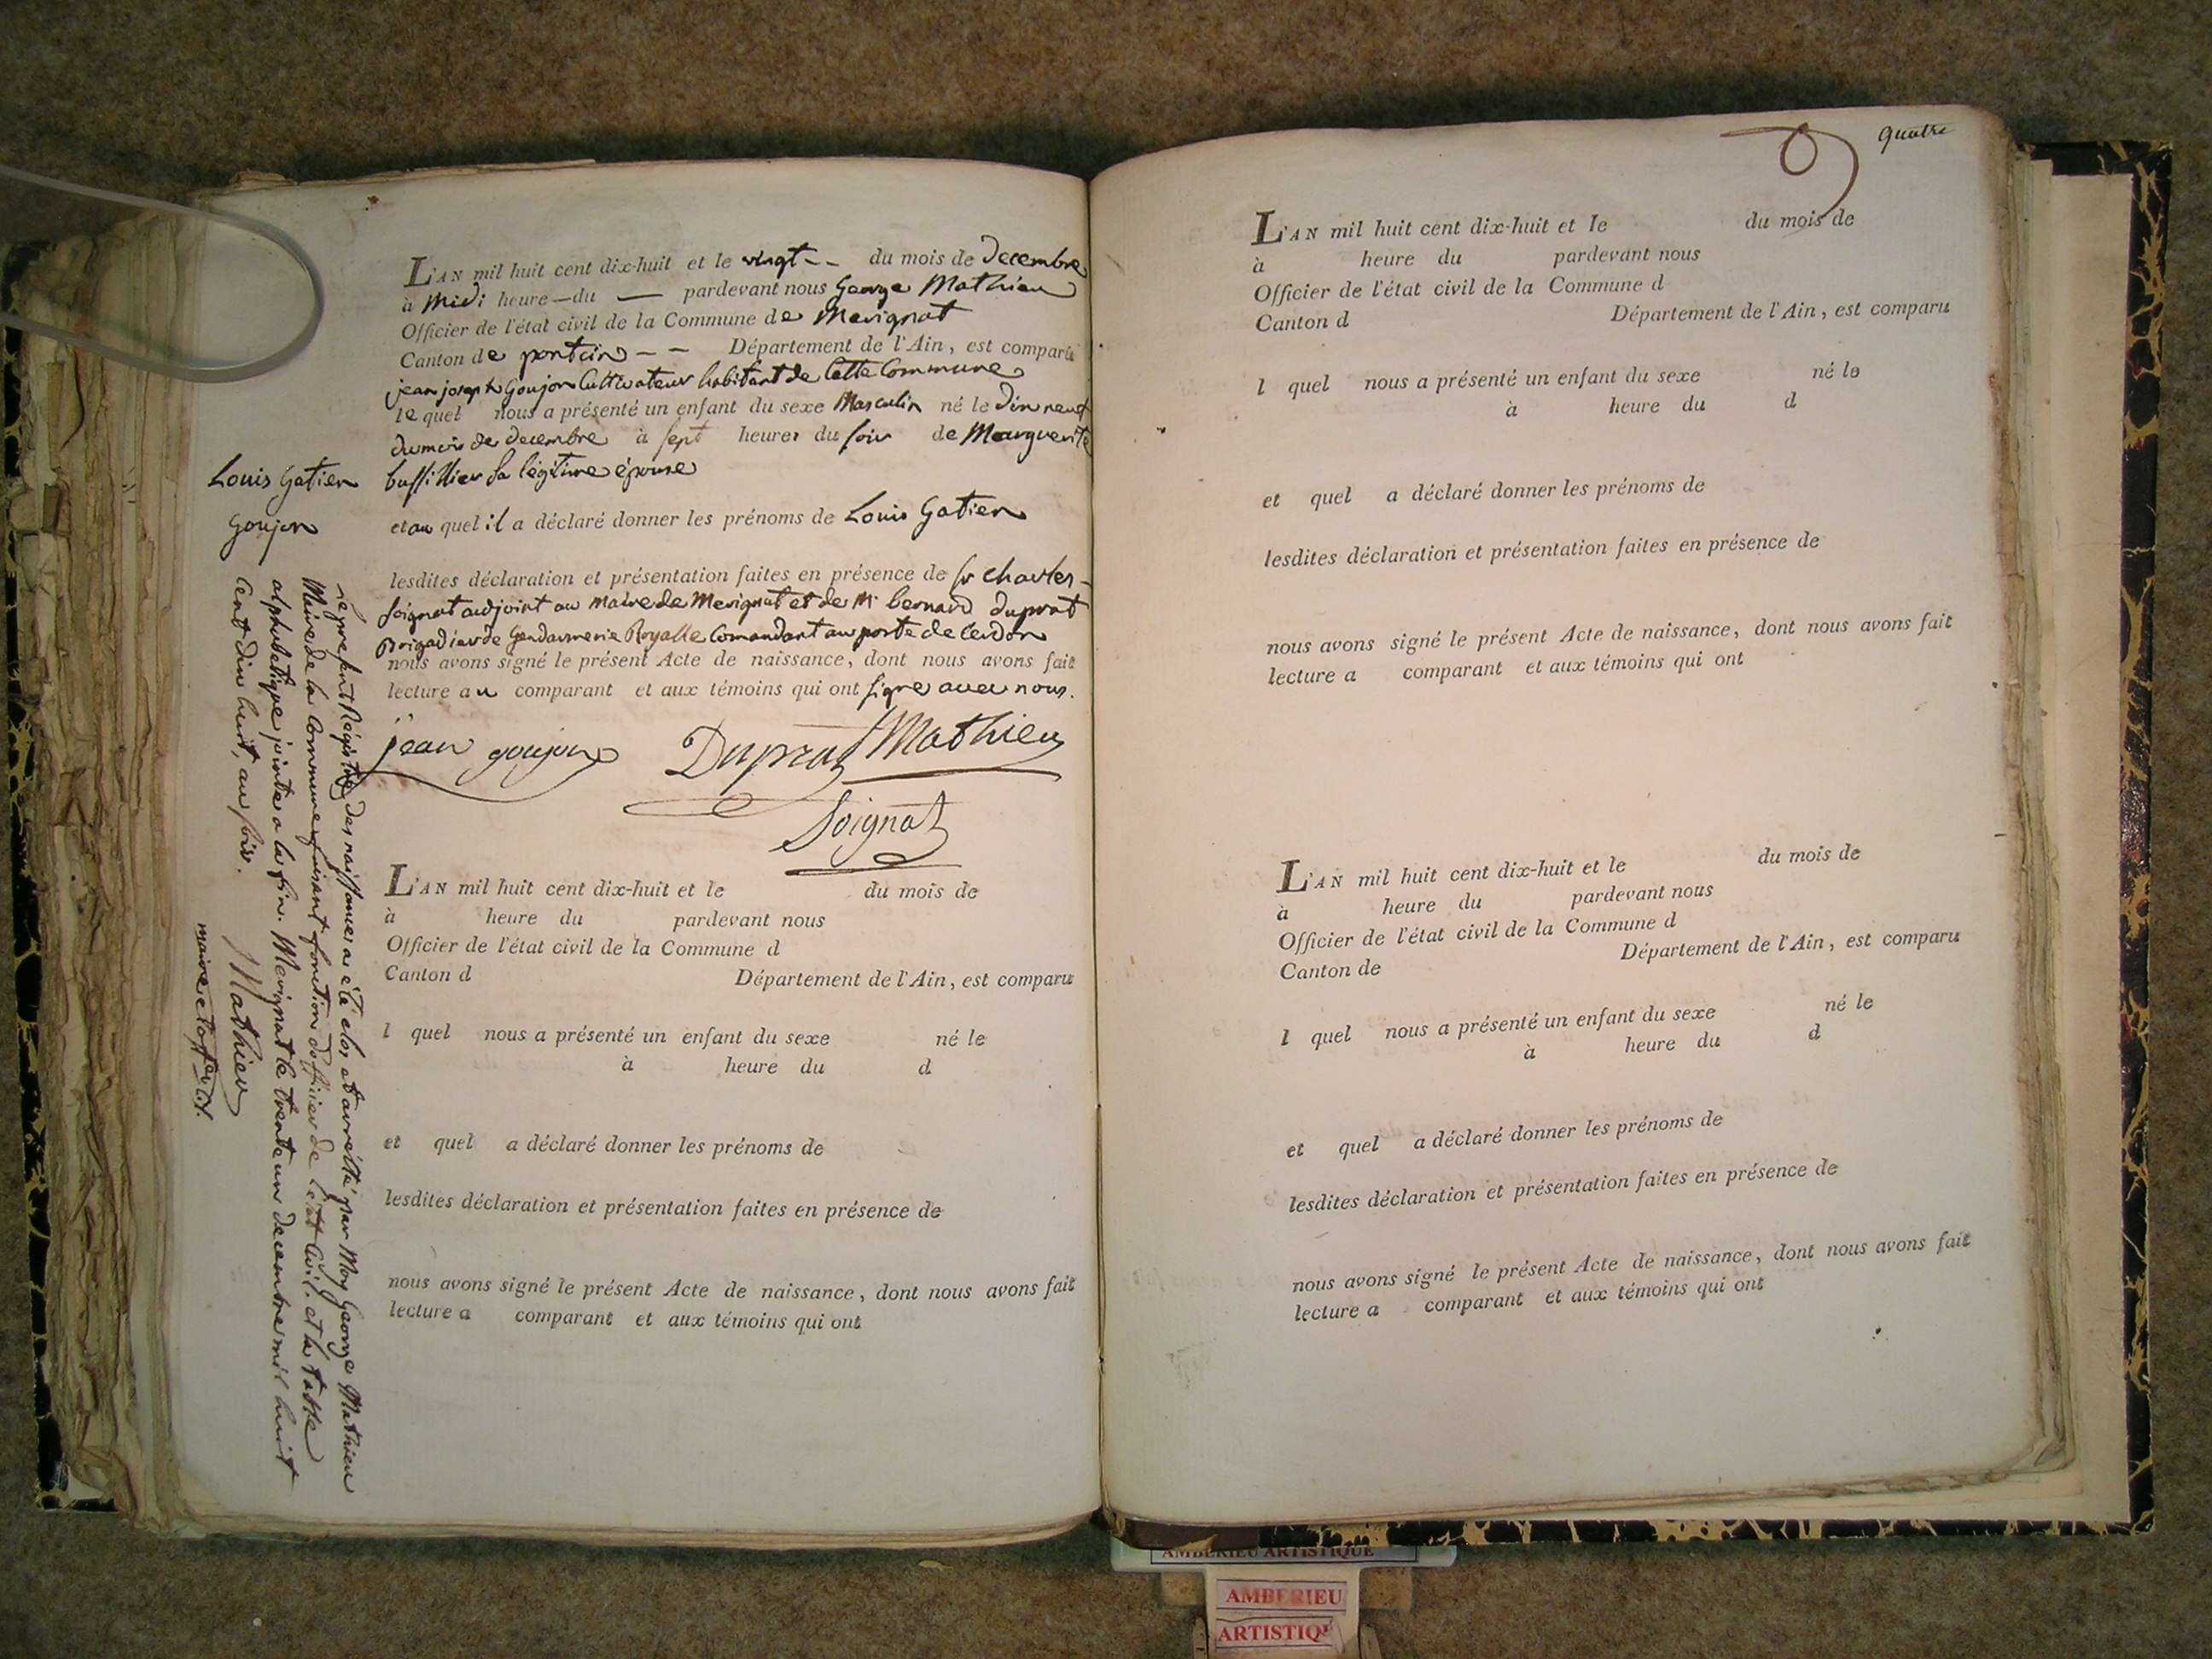 L'AN mil huit cent dix-huit et le vingt -- du mois de Decembre
à Midi heure — du — pardevant nous George Mathieu
Officier de l'état civil de la Commune de Merignat
Canton de pontcin -- Département de l'Ain, est comparu
jean joseph Goujon Cultivateur habitant de Cette Commune
le quel nous a présenté un enfant du sexe Masculin né le Dix neuf
du mois de decembre à sept heures du soir de Marguerite
bussillier sa légitime épouse
et au quel il a déclaré donner les prénoms de Louis Gatien
Louis Gatien
Goujon
lesdites déclaration et présentation faites en présence de sr Charles
Soignat adjoint au Maire de Merignat et de Mr bernard duprat
Brigadier de Gendarmerie Royalle Comandant au poste de Cerdon
nous avons signé le présent Acte de naissance, dont nous avons fait
lecture au comparant et aux témoins qui ont signe avec nous.
jean goujon Duprat Mathieu
Soignat
le present Régistre des naissances a été clos et arretté par Moy George Mathieu
Maire de la Commune faisant fonction d'officier de l'état Civil. et la table
alphabetique jointe a la fin. Merignat le trente un decembre mil huit
Cent dix huit, au soir.
Mathieu
maire et off er Cl.
L'AN mil huit cent dix-huit et le du mois de
à heure du pardevant nous
Officier de l'état civil de la Commune d
Canton d Département de l'Ain, est comparu
l quel nous a présenté un enfant du sexe né le
à heure du d
et quel a déclaré donner les prénoms de
lesdites déclaration et présentation faites en présence de
nous avons signé le présent Acte de naissance, dont nous avons fait
lecture a comparant et aux témoins qui ont
quatre
L'AN mil huit cent dix-huit et le du mois de
à heure du pardevant nous
Officier de l'état civil de la Commune d
Canton d Département de l'Ain, est comparu
l quel nous a présenté un enfant du sexe né le
à heure du d
et quel a déclaré donner les prénoms de
lesdites déclaration et présentation faites en présence de
nous avons signé le présent Acte de naissance, dont nous avons fait
lecture a comparant et aux témoins qui ont
L'AN mil huit cent dix-huit et le du mois de
à heure du pardevant nous
Officier de l'état civil de la Commune d
Canton de Département de l'Ain, est comparu
l quel nous a présenté un enfant du sexe né le
à heure du d
et quel a déclaré donner les prénoms de
lesdites déclaration et présentation faites en présence de
nous avons signé le présent Acte de naissance, dont nous avons fait
lecture a comparant et aux témoins qui ont
AMBERIEU ARTISTIQUE
AMBERIEU
ARTISTIQU